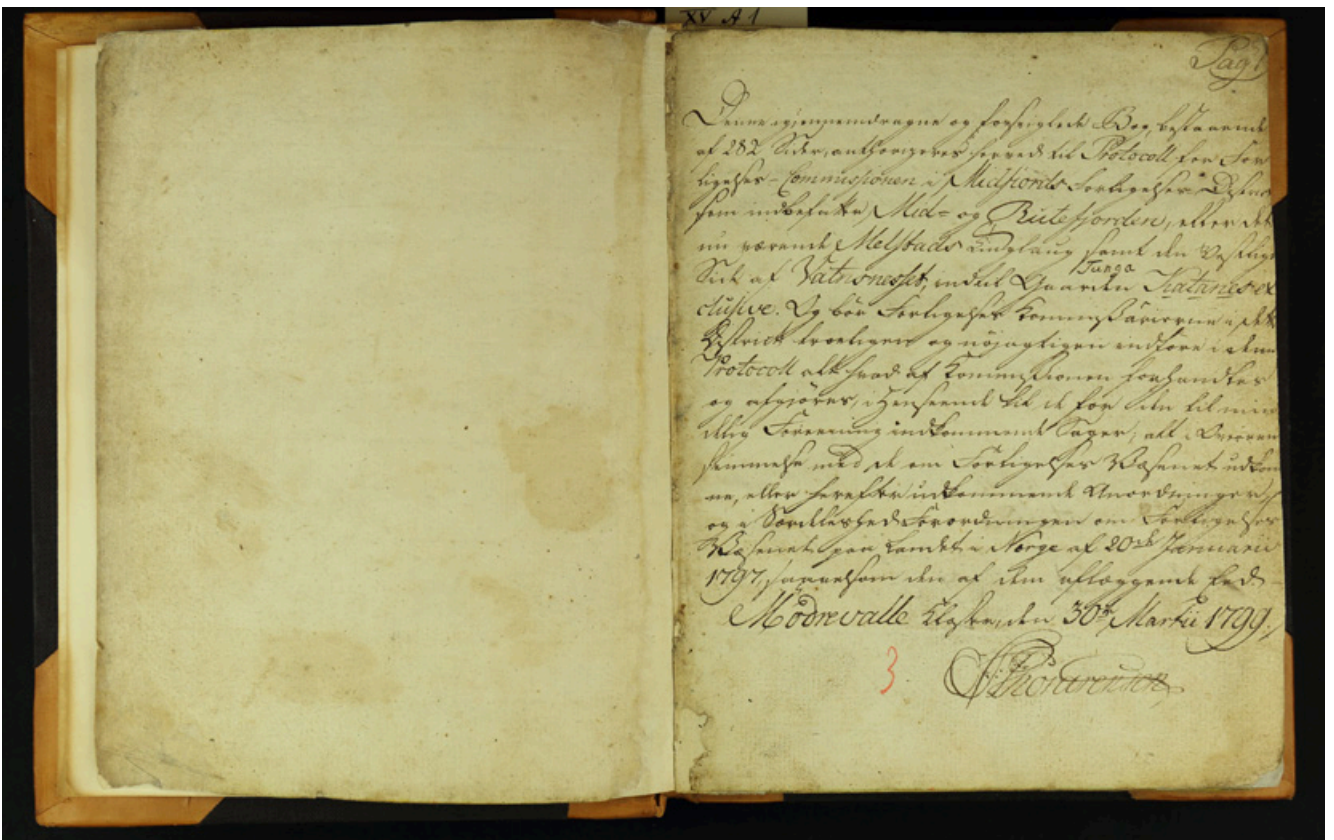 XV A 1
Pag 1
Denne igjennemdragne og forseiglede Bog, bestaaende
af 282 Sider, authoriseres herved til Protocoll for For
ligelses-Commissionen i Midfiords Forligelses District
som indbefatter Mid- og Rutefjorden, efter det
nu værende Melstads Tinglaug samt den Vestlige
Side af Vatnsnesset, indtil Gaarden Tunga Katanes ex
clusive. Og bør Forligelses Kommissairerne i dette
District troeligen og nøjagtigen indføre i denne
Protocoll alt hvad af Kommissionen forhandles
og afgjøres, i Henseende til de for den til min
delig Foreening indkommende Sager, alt i Overeens
stemmelse med de om Forligelses Væsenet udkom
ne, eller herefter udkommende Anordninger,
og i Særdeleshed Forordningen om Forligelses
Væsenet paa Landet i Norge af 20de Januarii
1797, saavelsom den af dem aflæggende Eed-
Mödrevalle Kloster, den 30te Martii 1799.
3 Thorarensen